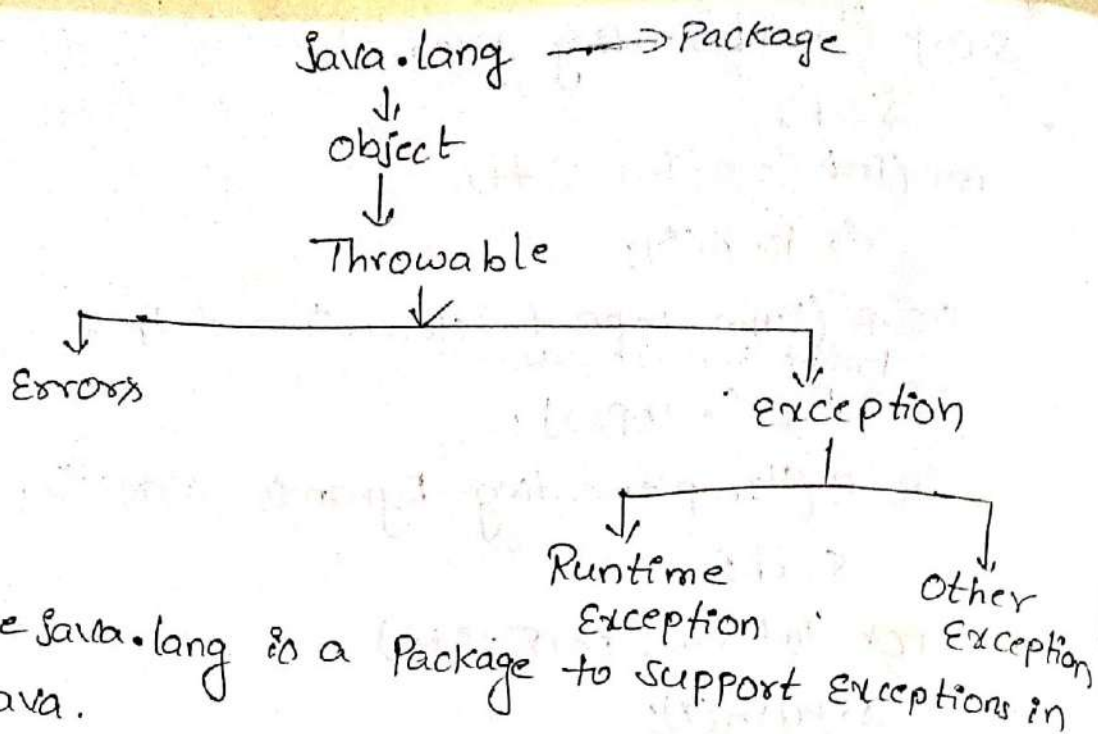 Java.lang → Package
Object
Throwable
Errors
Exception
Runtime Exception
Other Exception
e Java.lang is a Package to support Exceptions in
ava.